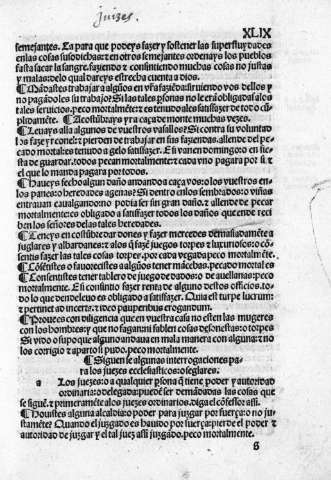 juizes.
XLIX
semejantes. La para que podeys fazer y sostener las superfluydades
en las cosas susodichas: z en otros semejantes ordenays los pueblos
fasta sacar la sangre. faziendo z consintiendo muchas cosas no justas
y malas: de lo qual dareys estrecha cuenta a dios.
¶ Mādastes trabajar a algūos en vřa faziēda: siruiendo vos dellos y
no pagādoles su trabajo? Si las tales psonas no le erā obligadas a los
tales seruicios. peco mortalmēte: z es tenudo a les satisfazer de todo cū
plidamēte. ¶ Acostūbrays yr a caça de monte muchas vezes.
¶ Leuays alla algunos de vuestros vasallos? Si contra su voluntad
los faze yr con el: z pierden de trabajar en sus faziendas. allende del pe
cado mortal: es tenudo a gelo satisfazer. E si van en domingo o en fie
sta de guardar. todos pecan mortalmente: z cada vno pagara por si. z
el que lo manda pagara por todos.
¶ Haueys fecho algun daño andando a caça vos: o los vuestros en
los panes: o heredades agenas? Si dentro en los sembrados: o viñas
entrauan caualgando: no podia ser sin gran daño. z allende de pecar
mortalmente: es obligado a satisfazer todos los daños que ende reci
ben los señores de las tales heredades.
¶ Teneys en costūbre dar dones y fazer mercedes demasiadamēte a
juglares y albardanes: z a los q̄ fazē juegos torpes z luxuriosos: o cō
sentis fazer las tales cosas torpes. por cada vegada peco mortalmēte.
¶ Cōsentistes o fauorecistes a algūos tener mācebas. peco mortalmētes
¶ Consentistes tener tablero de juego de dados: o de auellanas: peco
mortalmente. E si consintio fazer renta de alguno destos officios. to
do lo que dende leuo es obligado a satisfazer. Quia est turpe lucrum:
z pertinet ad incerta: z ideo pauperibus erogandum.
¶ Proueeys con diligencia que en vuestra casa no esten las mugeres
con los hombres: y que no fagan: ni fablen cosas desonestas: o torpes
Si vido o supo que alguno andaua en mala manera con alguna: z no
los corrigio z aparto si pudo. peco mortalmente.
¶ Siguen se algunas interrogaciones pa
ra los juezes ecclesiasticos: o seglares.
a Los juezes: o a qualquier psona q̄ tiene poder y autoridad
ordinaria: o delegada: pueden ser demādadas las cosas que
se siguē. z primeramēte a los juezes ordinarios. diga el cōfessor assi.
¶ Houistes alguna alcaldia: o poder para juzgar por fuerça: o no ju-
stamēte? Quando el juzgado es hauido por fuerça: pierde el poder z
autoridad de juzgar. y el tal juez assi juzgādo. peco mortalmente.
6